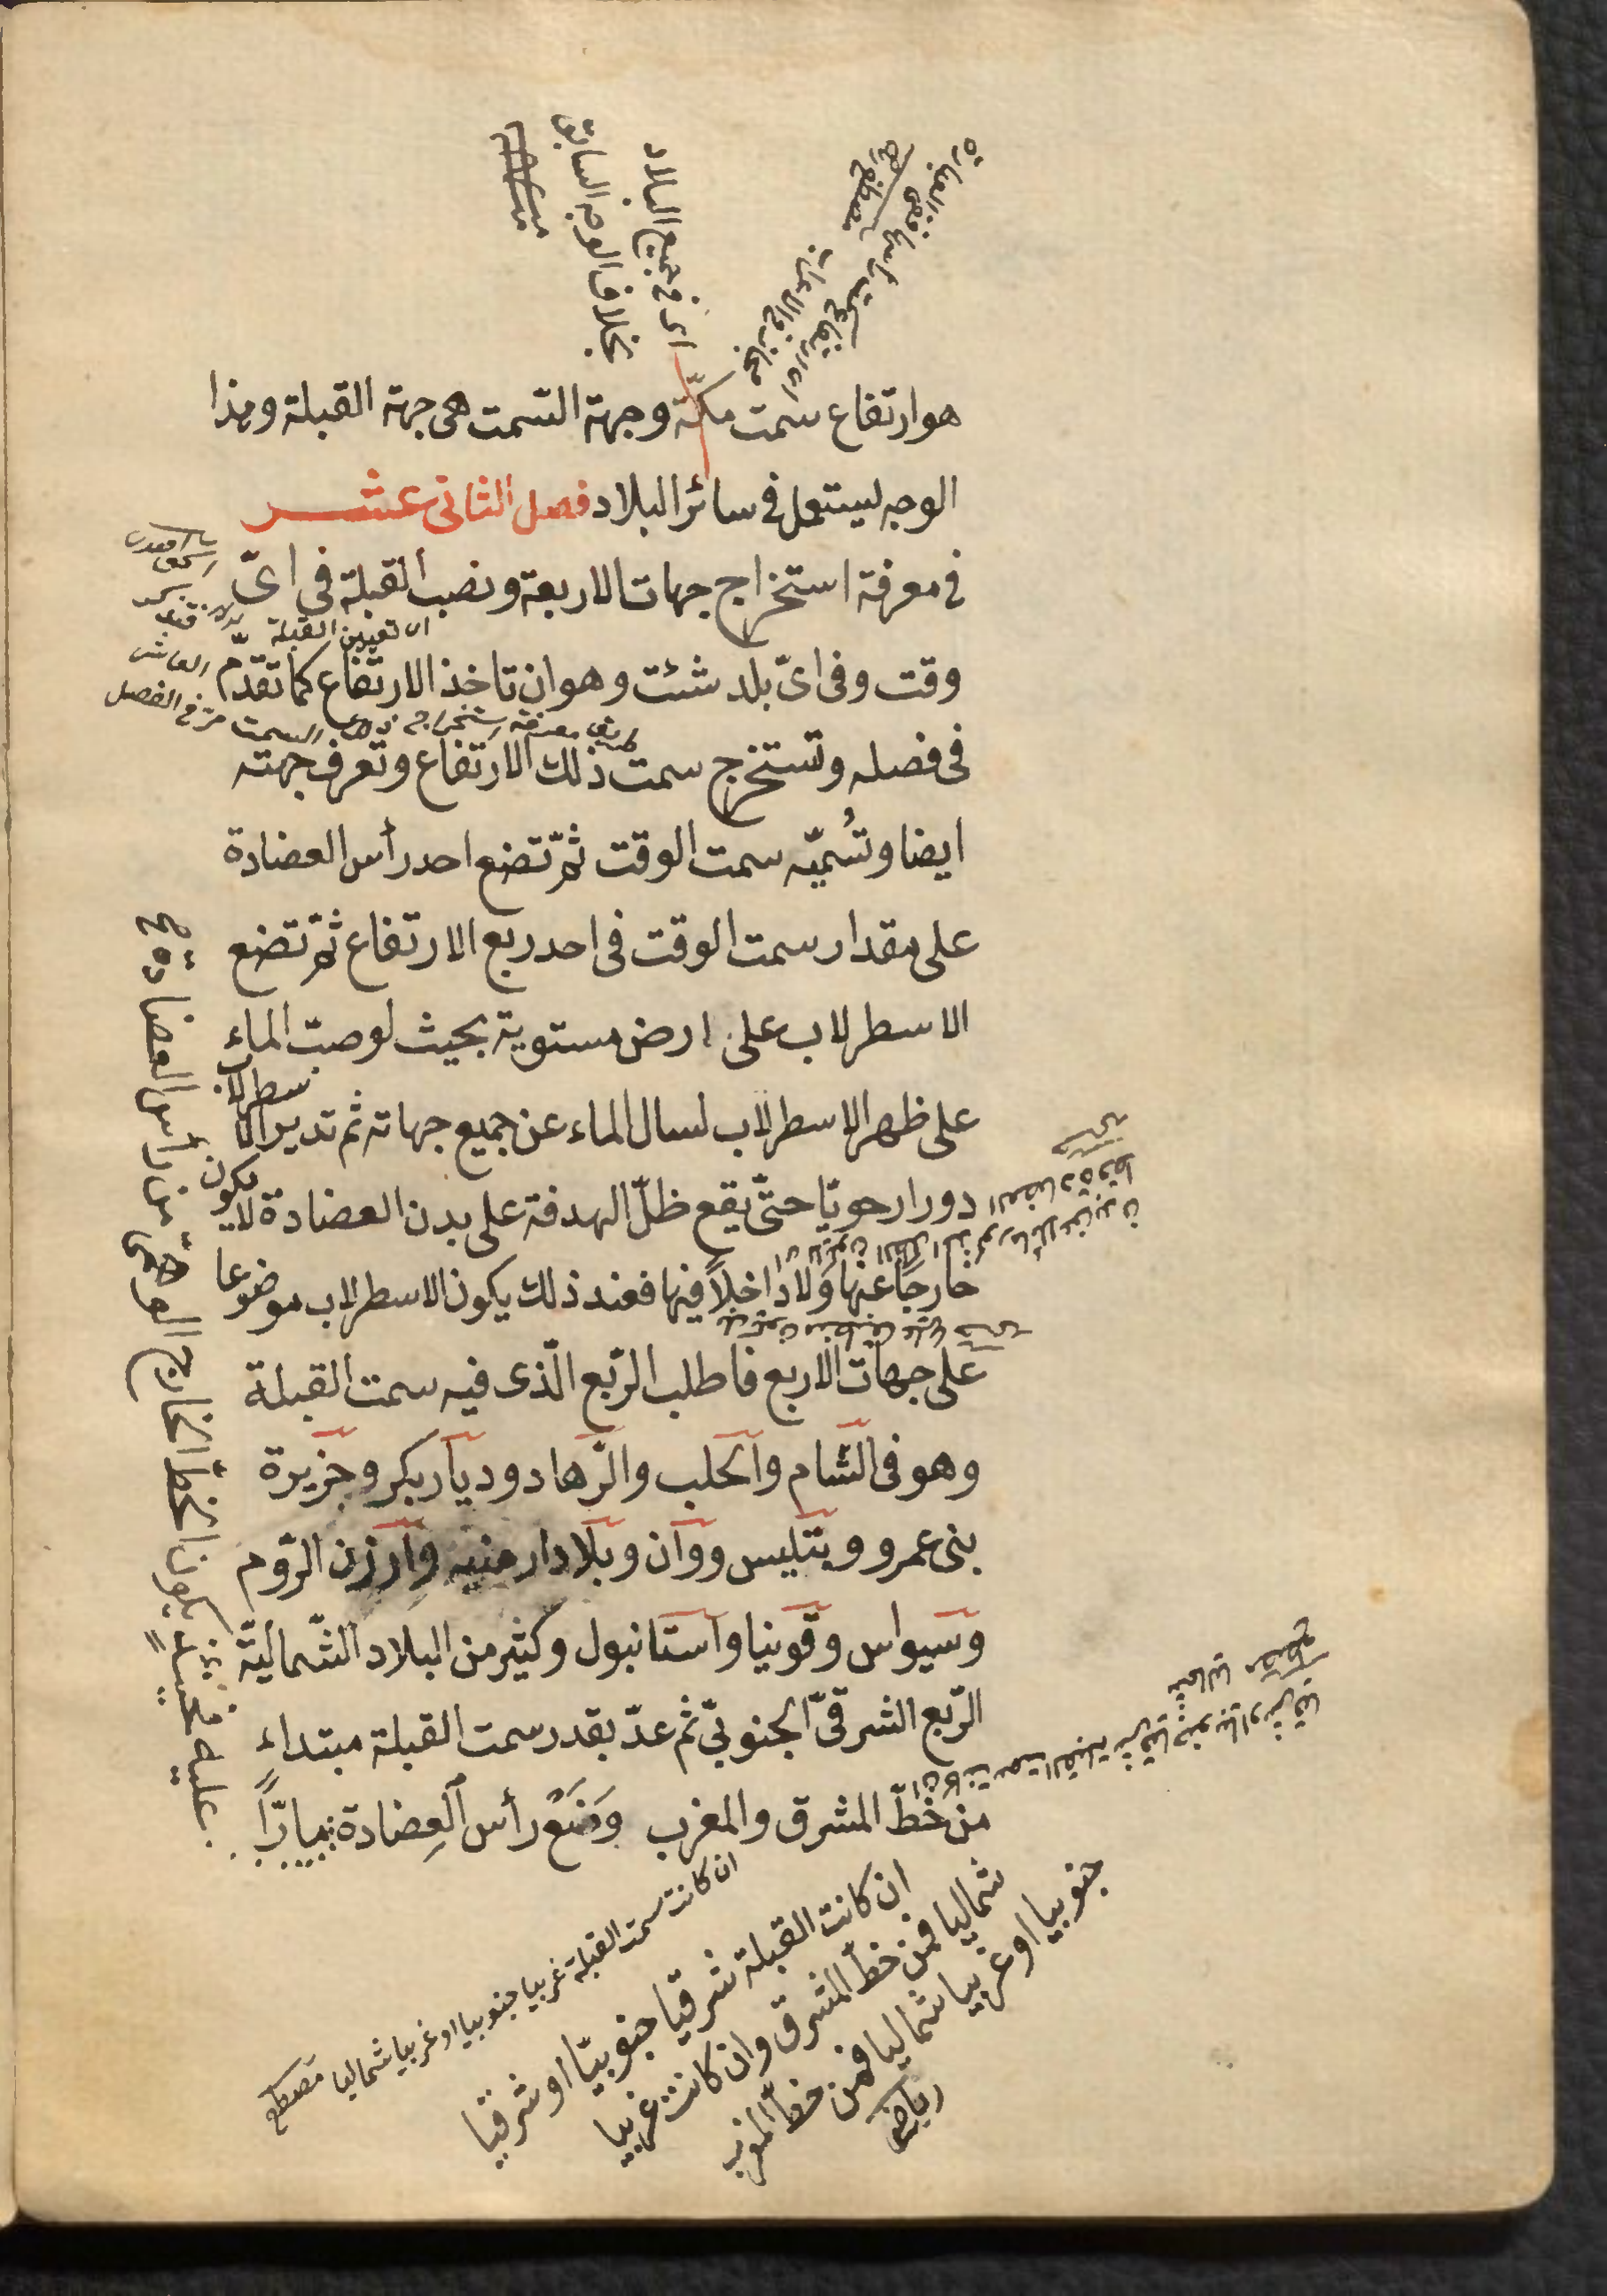 هو ارتفاع سمت مكّة وجهة السّمت هى جهة القبلة وهذا
الوجه ليستعمل فى سائر البلاد فصل الثانى عشر
فى معرفة استخراج جهات الاربعة ونصب القبلة فى اىّ
وقت وفى اىّ بلد شئت وهو ان تاخذ الارتفاع كما تقدّم
فى فصله وتستخرج سمت ذلك الارتفاع وتعرف جهته
ايضا وتُسميّه سمت الوقت ثمّ تضع احد رأس العضادة
على مقدار سمت الوقت فى احد ربع الارتفاع ثمّ تضع
الاسطرلاب على ارض مستوية بحيث لو صبّ الماء
على ظهر الاسطرلاب لسال الماء عن جميع جهاته ثم تدير الاسطرلاب
دورا رحويّا حتّى يقع ظلّ الهدفة على بدن العضادة لا يكون
خارجًا عنها وَلا داخلاً فيها فعند ذلك يكون الاسطرلاب موضوعا
على جهات الاربع فاطلب الرّبع الّذى فيه سمت القبلة
وهو فى الشّام والحلب والرّها دو ديار بكر وجزيرة
بنى عمرو وبتليس ووان وبلاد ارمنيه وارزن الرّوم
وسيواس وقونيا واستانبول وكثير من البلاد الشّماليّة
الرّبع الشرقىّ الجنوبىّ ثم عدّ بقدر سمت القبلة مبتداء
من خطّ المشرق والمغرب وَضَعْ رأس العِضادة
اى فى جميع البلاد
بخلاف الوجه السابق
اى تعيين القبلة
ان كانت سمت القبلة غربيا جنوبيا او غربيا شماليا
ان كانت القبلة شرقيا جنوبيّا او شرقيا
شماليا فمن خطّ المشرق وان كانت غربيا
جنوبيا او غربيا شماليا فمن خطّ المغرب